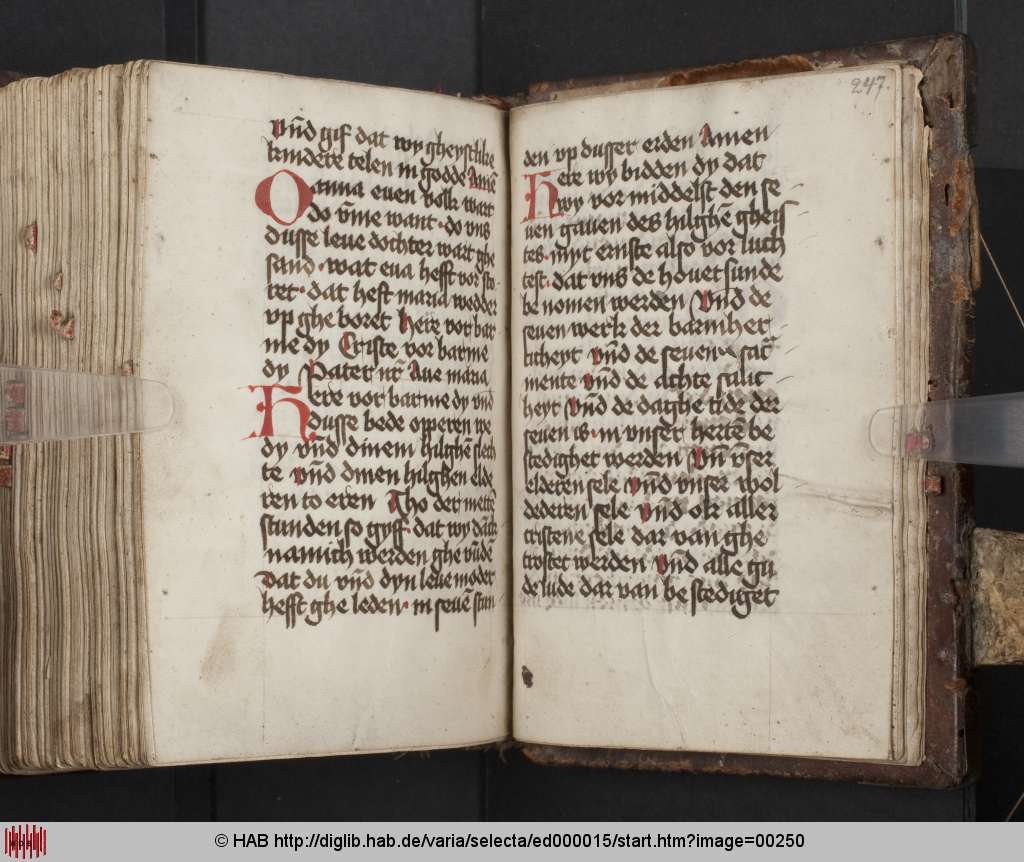 Vn̄d gif dat wy gheystlike
kindere telen in godde Amē
O anna even volk wart
do v̄me want · do vns
dusse leue dochter wart ghe
sand · wat eua hefft vor sto
ret · dat heft maria wedder
vp ghe boret here vor bar
me dy Criste vor barme
dy Pater nr̄ Aue maria
Here vor barme dy vnd
dusse bede opperen we
dy vn̄d dinem hilghēn slech
te vn̄d dinen hilghen elde
ren to eren Tho der metten
stunden so gyff · dat wy dāck
namich werden ghe vūde
Dat du vn̄d dyn leue moder
hefft ghe leden · in seuē stun
247.
den vp dusser erden Amen
Here wy bidden dy dat
wy vor middelst den se
uen gauen des hilghēn gheis
tes · myt ernste also vor luch
test · dat vns de hovet sunde
be nomen werden Vn̄d de
seuen werk der barmher
ticheyt vn̄d de seuen sacr̄
mente vn̄d de achte salic
heyt Vn̄d de daghe tide der
seuen is · in vnser hertē be
stedighet werden Vn̄ v̄ser
elderen sele vn̄d vnser wol
dederen sele vn̄d ok aller
cristene sele dar van ghe
trostet werden vn̄d alle gu
de lude dar van be stediget
© HAB http://diglib.hab.de/varia/selecta/ed000015/start.htm?image=00250